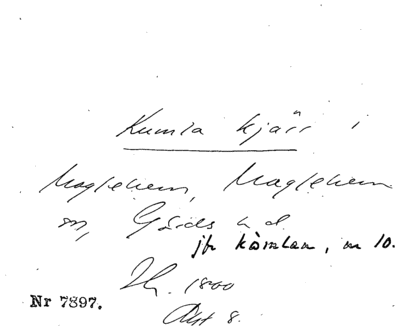 Kumla kjärr i
Maglehem, Maglehem
sn, Gärds hd
jfr kärnlan, nr 10.
1800
Akt 8.
Nr 7897.